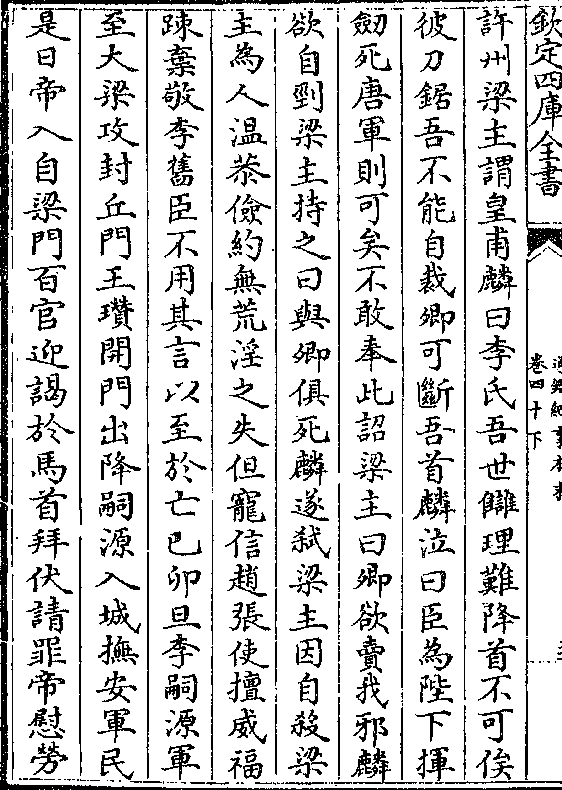 欽定四庫全書
卷四十下
許州梁主謂皇甫麟曰李氏吾世讎理難降首不可俟
彼刀鋸吾不能自裁卿可斷吾首麟泣曰臣為陛下揮
劒死唐軍則可矣不敢奉此詔梁主曰卿欲賣我邪麟
欲自剄梁主持之曰與卿俱死麟遂弑梁主因自殺梁
主為人温恭儉約無荒淫之失但寵信趙張使擅威福
踈棄敬李舊臣不用其言以至於亡已卯旦李嗣源軍
至大梁攻封丘門王瓚開門出降嗣源入城撫安軍民
是日帝入自梁門百官迎謁於馬首拜伏請罪帝慰勞